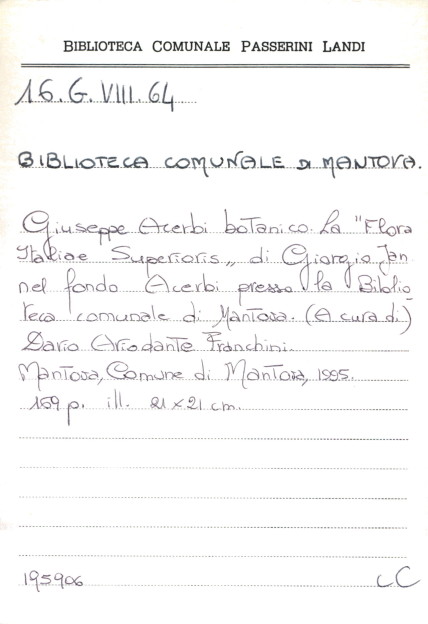 BIBLIOTECA COMUNALE PASSERINI LANDI
16. G. VIII. 64
BIBLIOTECA COMUNALE DI MANTOVA.
Giuseppe Acerbi botanico. La "Flora
Italiae Superioris„ di Giorgio Jan
nel fondo Acerbi presso la Biblio_
teca comunale di Mantova. (A cura di)
Dario Ariodante Franchini.
Mantova, Comune di Mantova, 1995.
159 p. ill. 21 x 21 cm.
195906 CC